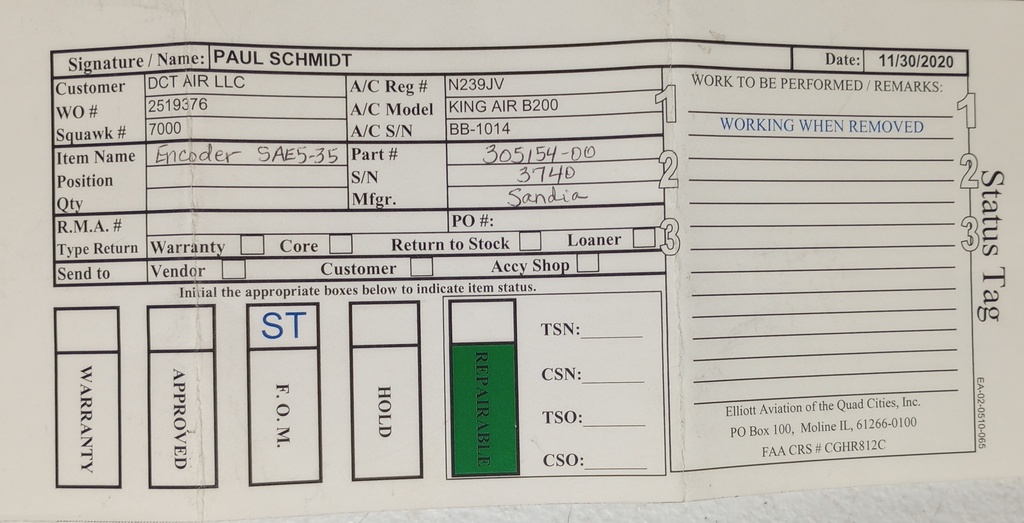 Signature / Name: PAUL SCHMIDT Date: 11/30/2020
Customer DCT AIR LLC A/C Reg # N239JV
WO # 2519376 A/C Model KING AIR B200
Squawk # 7000 A/C S/N BB-1014
Item Name Encoder SAE5-35 Part # 305154-00
Position S/N 3740
Qty Mfgr. Sandia
R.M.A. # PO #:
Type Return Warranty Core Return to Stock Loaner
Send to Vendor Customer Accy Shop
Initial the appropriate boxes below to indicate item status.
WARRANTY
APPROVED
ST
F. O. M.
HOLD
REPAIRABLE
TSN:
CSN:
TSO:
CSO:
1
2
3
WORK TO BE PERFORMED / REMARKS:
WORKING WHEN REMOVED
1
2
3
Elliott Aviation of the Quad Cities, Inc.
PO Box 100, Moline IL, 61266-0100
FAA CRS # CGHR812C
Status Tag
EA-02-0510-065